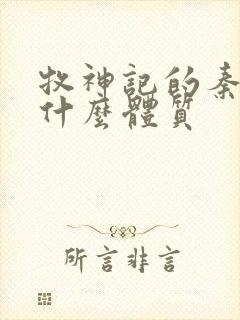 牧神記的秦
什麼體質
所言非言